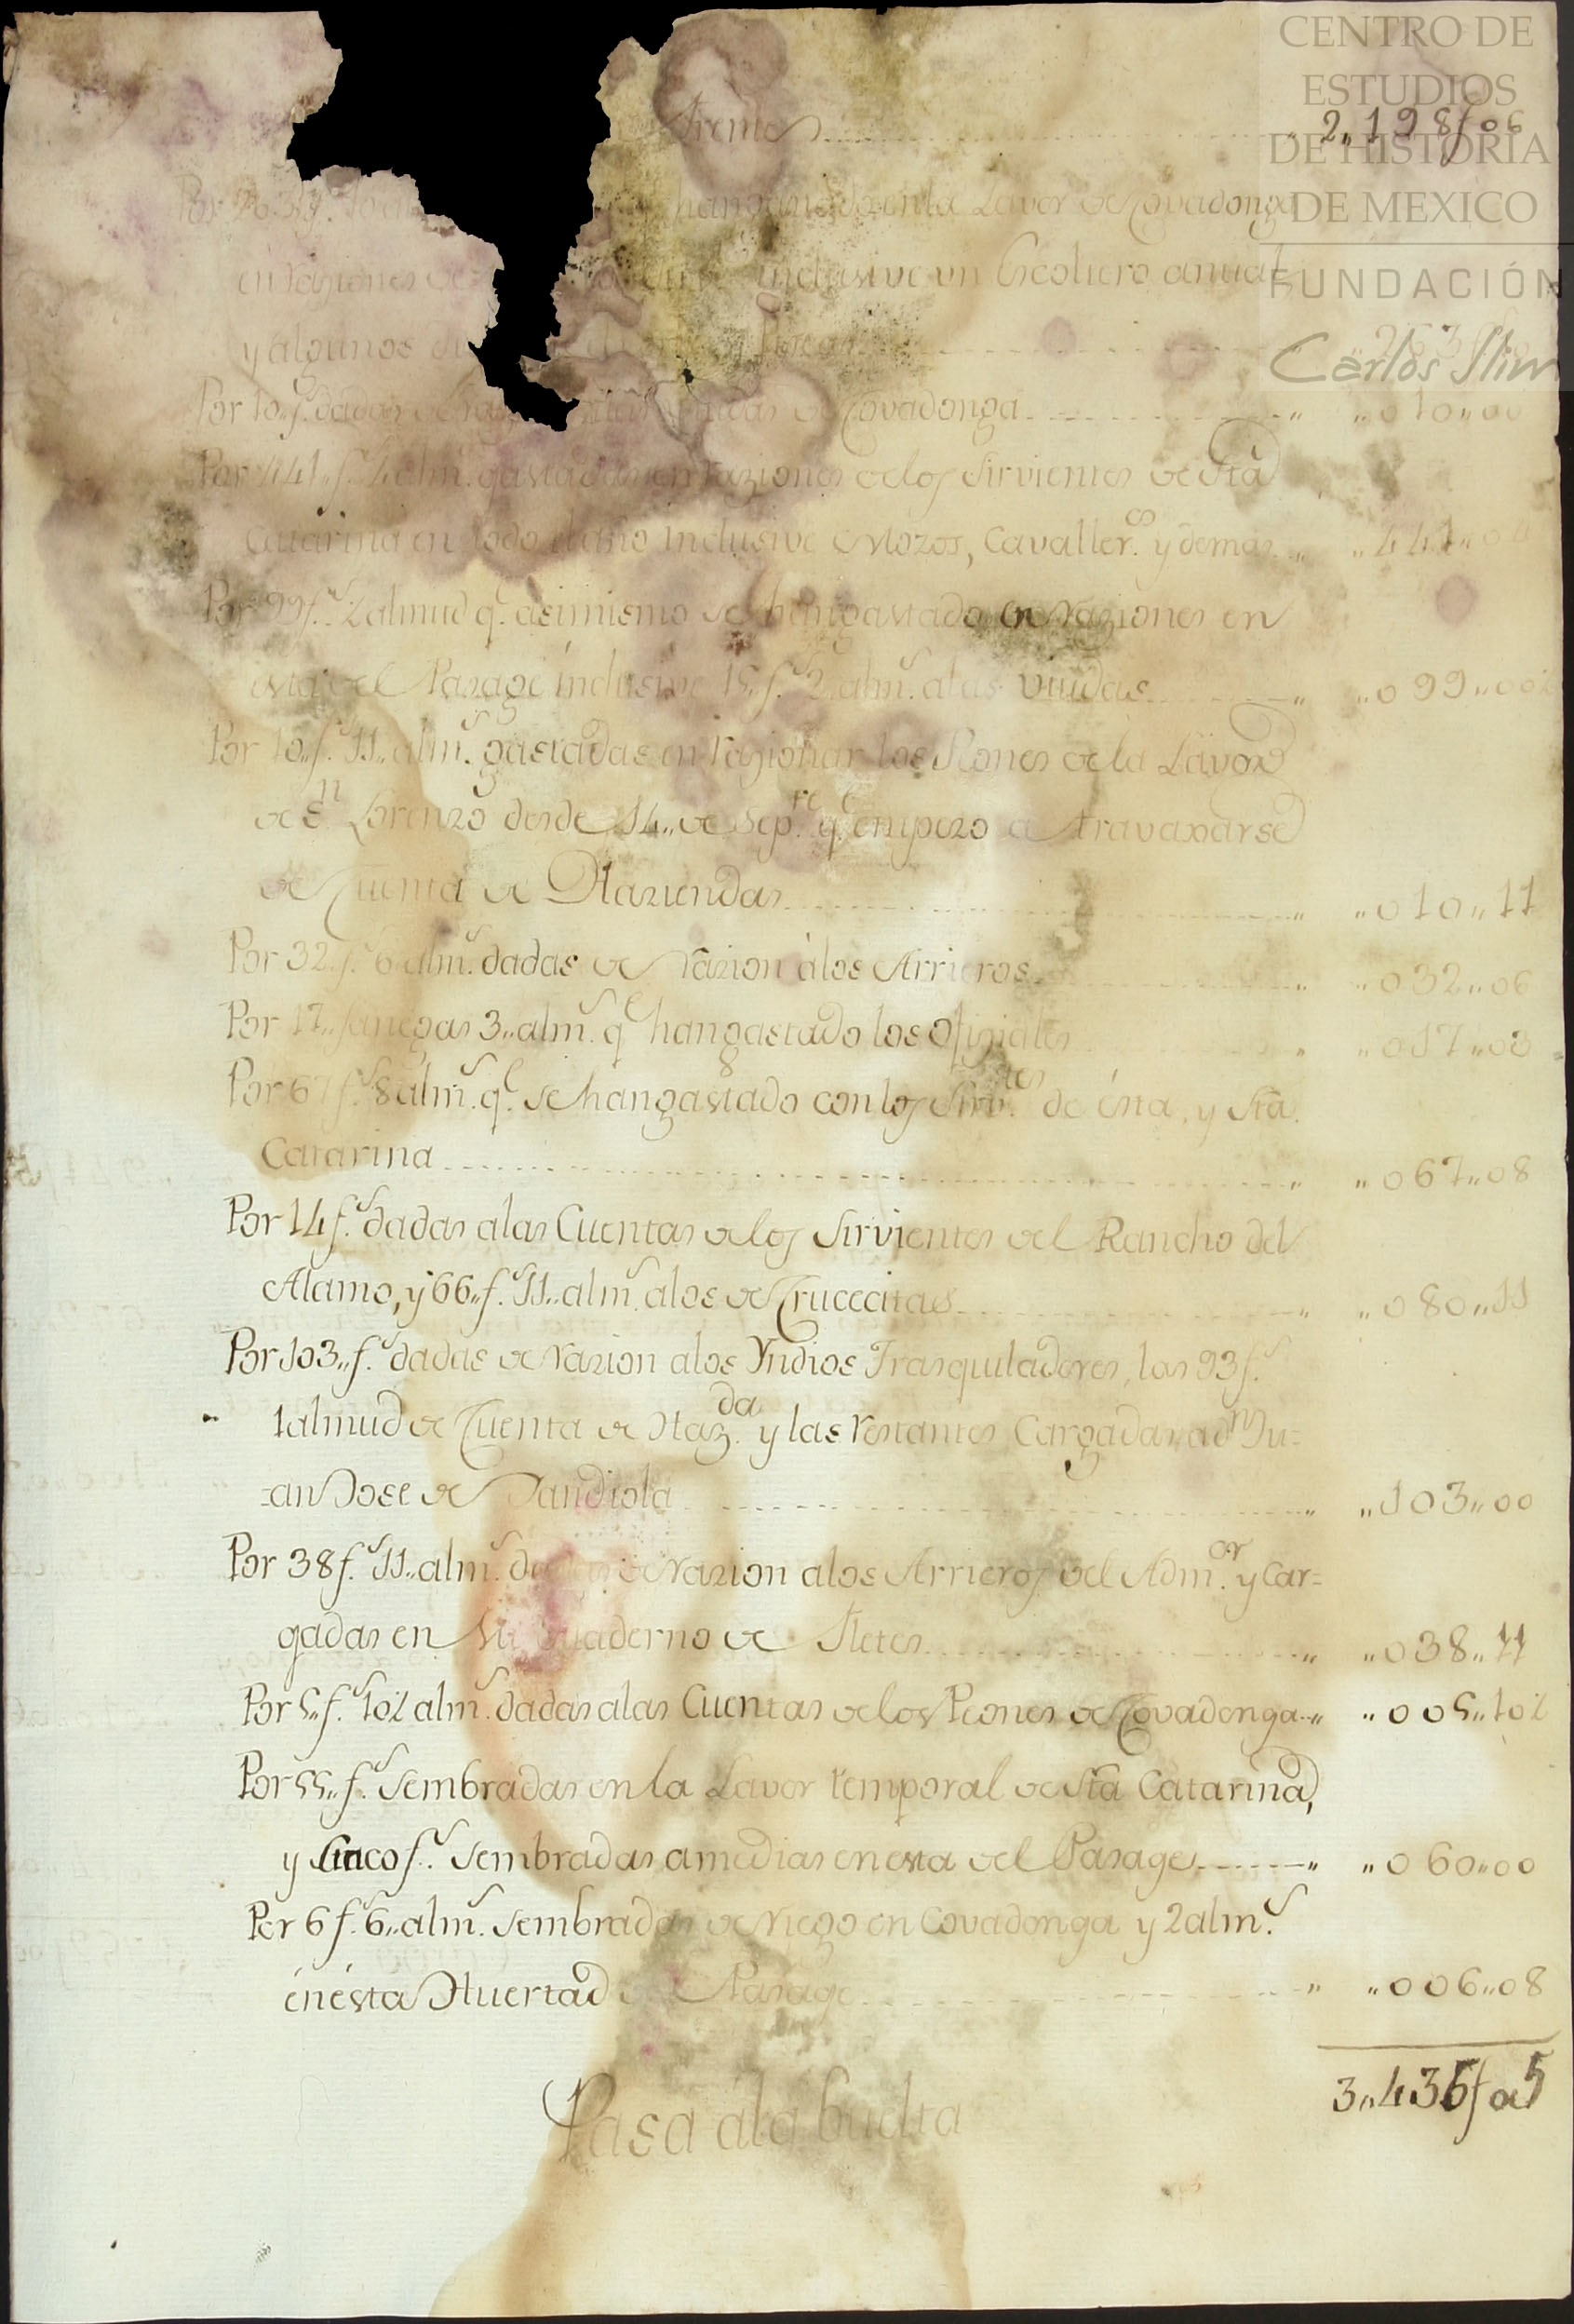 CENTRO DE
ESTUDIOS
DE HISTORIA
DE MEXICO
FUNDACIÓN
Carlos Slim
frente 2,,198f06
Por han gastado en la Lavor de Covadonga
en raziones de inclusive un Escoltero anual
y algunos
Por 10,,f.s dadas de viudas de Covadonga ,,010,,00
Por 441,,f.s 4 alm.s gastadas en raziones de los Sirvientes de Sta
Catarina en todo el año inclusive Mozos, Cavaller.os y demas ,,441,,04
Por 99f.s 2 almud q.e asimismo se han gastado en raziones en
esta del Pasage inclusive 15,,f.s 2,,alm.s a las viudas ,,099,,002
Por 10,,f.s 11,,alm.s gastadas en razionar los Peones de la Lavor
de Sn Lorenzo desde 14,, de Sep.re q.e empezo a travaxarse
de Cuenta de Haziendas ,,010,,11
Por 32,,f.s 6 alm.s dadas de razion à los Arrieros ,,032,,06
Por 17,,fanegas 3,,alm.s q.e han gastado los Ofiziales ,,017,,03
Por 67f.s 8 alm.s q.e se han gastado con los Sirv.tes de ésta, y Sta
Catarina ,,067,,08
Por 14f.s dadas a las Cuentas de los Sirvientes del Rancho del
Alamo, y 66,,f.s 11,,alm.s a los de Crucecitas ,,080,,11
Por 103,,f.s dadas de razion a los Yndios Trasquiladores, las 93f.s
1 almud de Cuenta de Haz.da y las restantes Cargadas a dn Ju=
=an Jose de Gandiola ,,103,,00
Por 38f.s 11,,alm.s dadas de razion a los Arrieros del Adm.or y Car=
gadas en su quaderno de Fletes ,,038,,11
Por 5,,f.s 102 alm.s dadas a las Cuentas de los Peones de Covadonga ,,005,,102
Por 55,,f.s Sembradas en la Lavor temporal de Sta Catarina,
y Cinco f.s Sembradas a medias en esta del Pasage ,,060,,00
Por 6f.s 6,,alm.s Sembradas de riego en Covadonga y 2 alm.s
én ésta Huerta del Pasage ,,006,,08
3,,436f a5
Pasa a la buelta